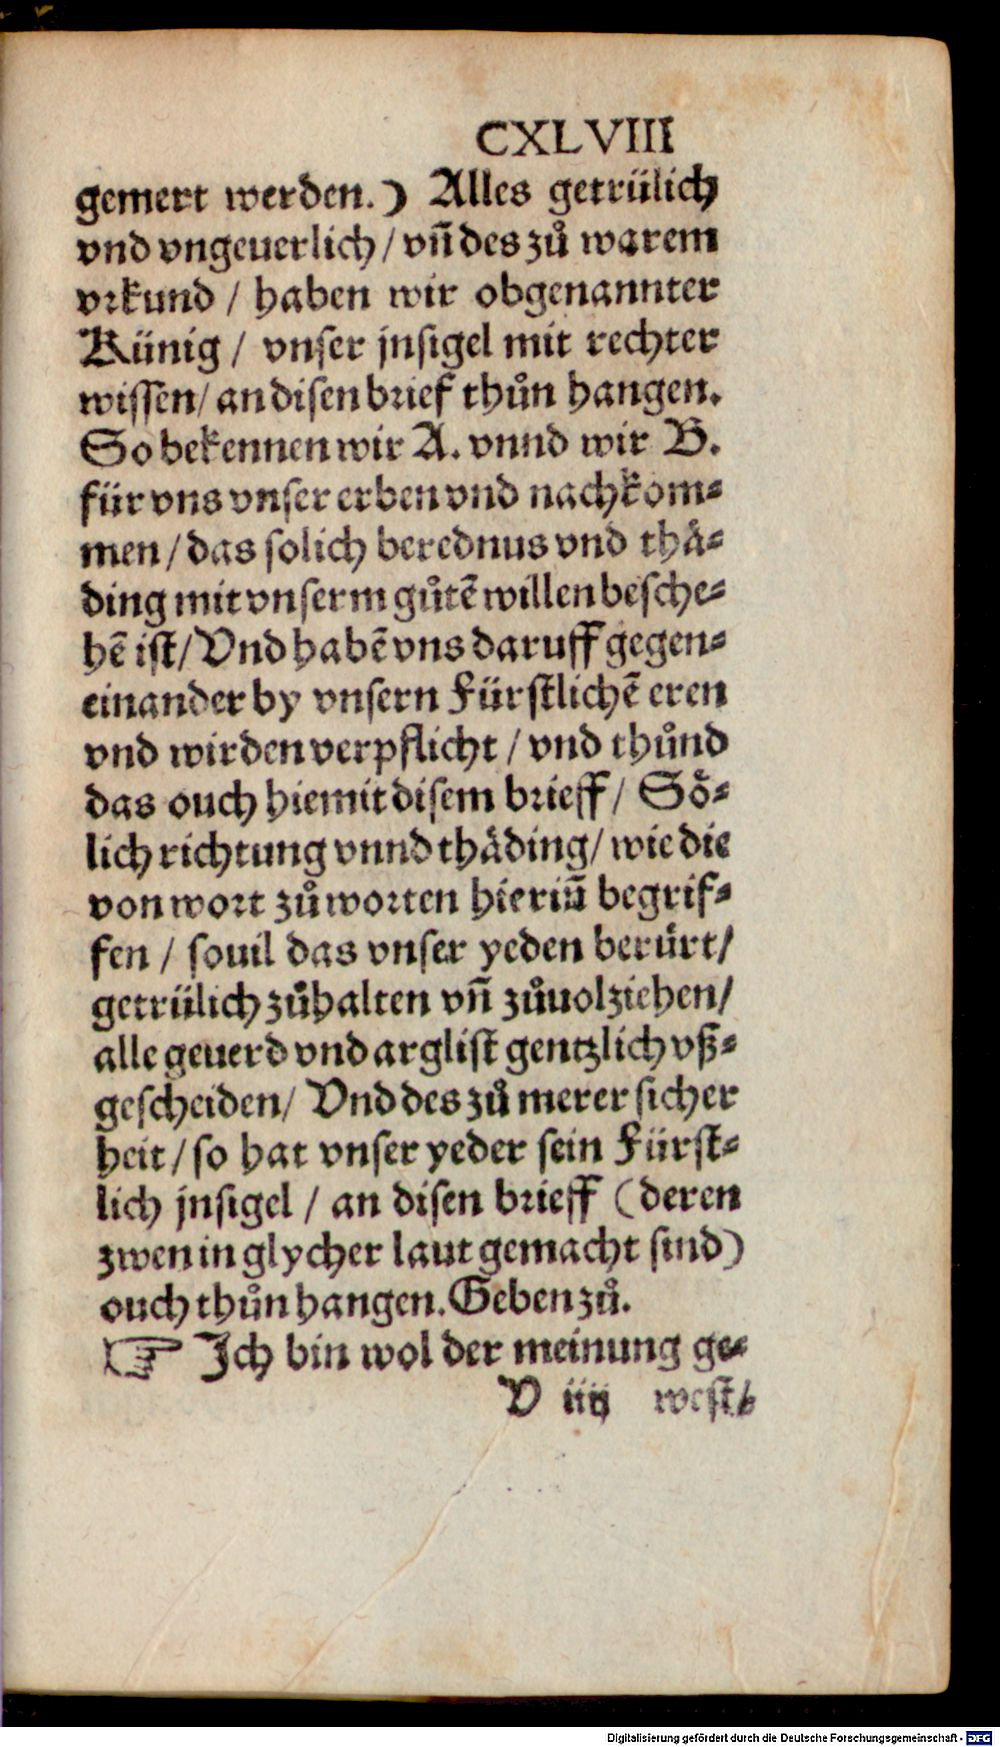 CXLVIII
gemert werden.) Alles getrülich
vnd vngeuerlich / vñ des zů warem
vrkund / haben wir obgenannter
Künig / vnser jnsigel mit rechter
wissen / an disen brief thůn hangen.
So bekennen wir A. vnnd wir B.
für vns vnser erben vnd nachkom⸗
men / das solich berednus vnd thaͤ⸗
ding mit vnserm gůtē willen besche⸗
hē ist / Vnd habē vns daruff gegen⸗
einander by vnsern Fürstlichē eren
vnd wirden verpflicht / vnd thůnd
das ouch hiemit disem brieff / Soͤ⸗
lich richtung vnnd thaͤding / wie die
von wort zů worten hieriñ begrif⸗
fen / souil das vnser yeden berürt /
getrülich zůhalten vñ zůuolziehen /
alle geuerd vnd arglist gentzlich vß⸗
gescheiden / Vnd des zů merer sicher
heit / so hat vnser yeder sein Fürst⸗
lich jnsigel / an disen brieff (deren
zwen in glycher laut gemacht sind)
ouch thůn hangen. Geben zů.
☞ Ich bin wol der meinung ge⸗
V iiij west /
Digitalisierung gefördert durch die Deutsche Forschungsgemeinschaft - DFG